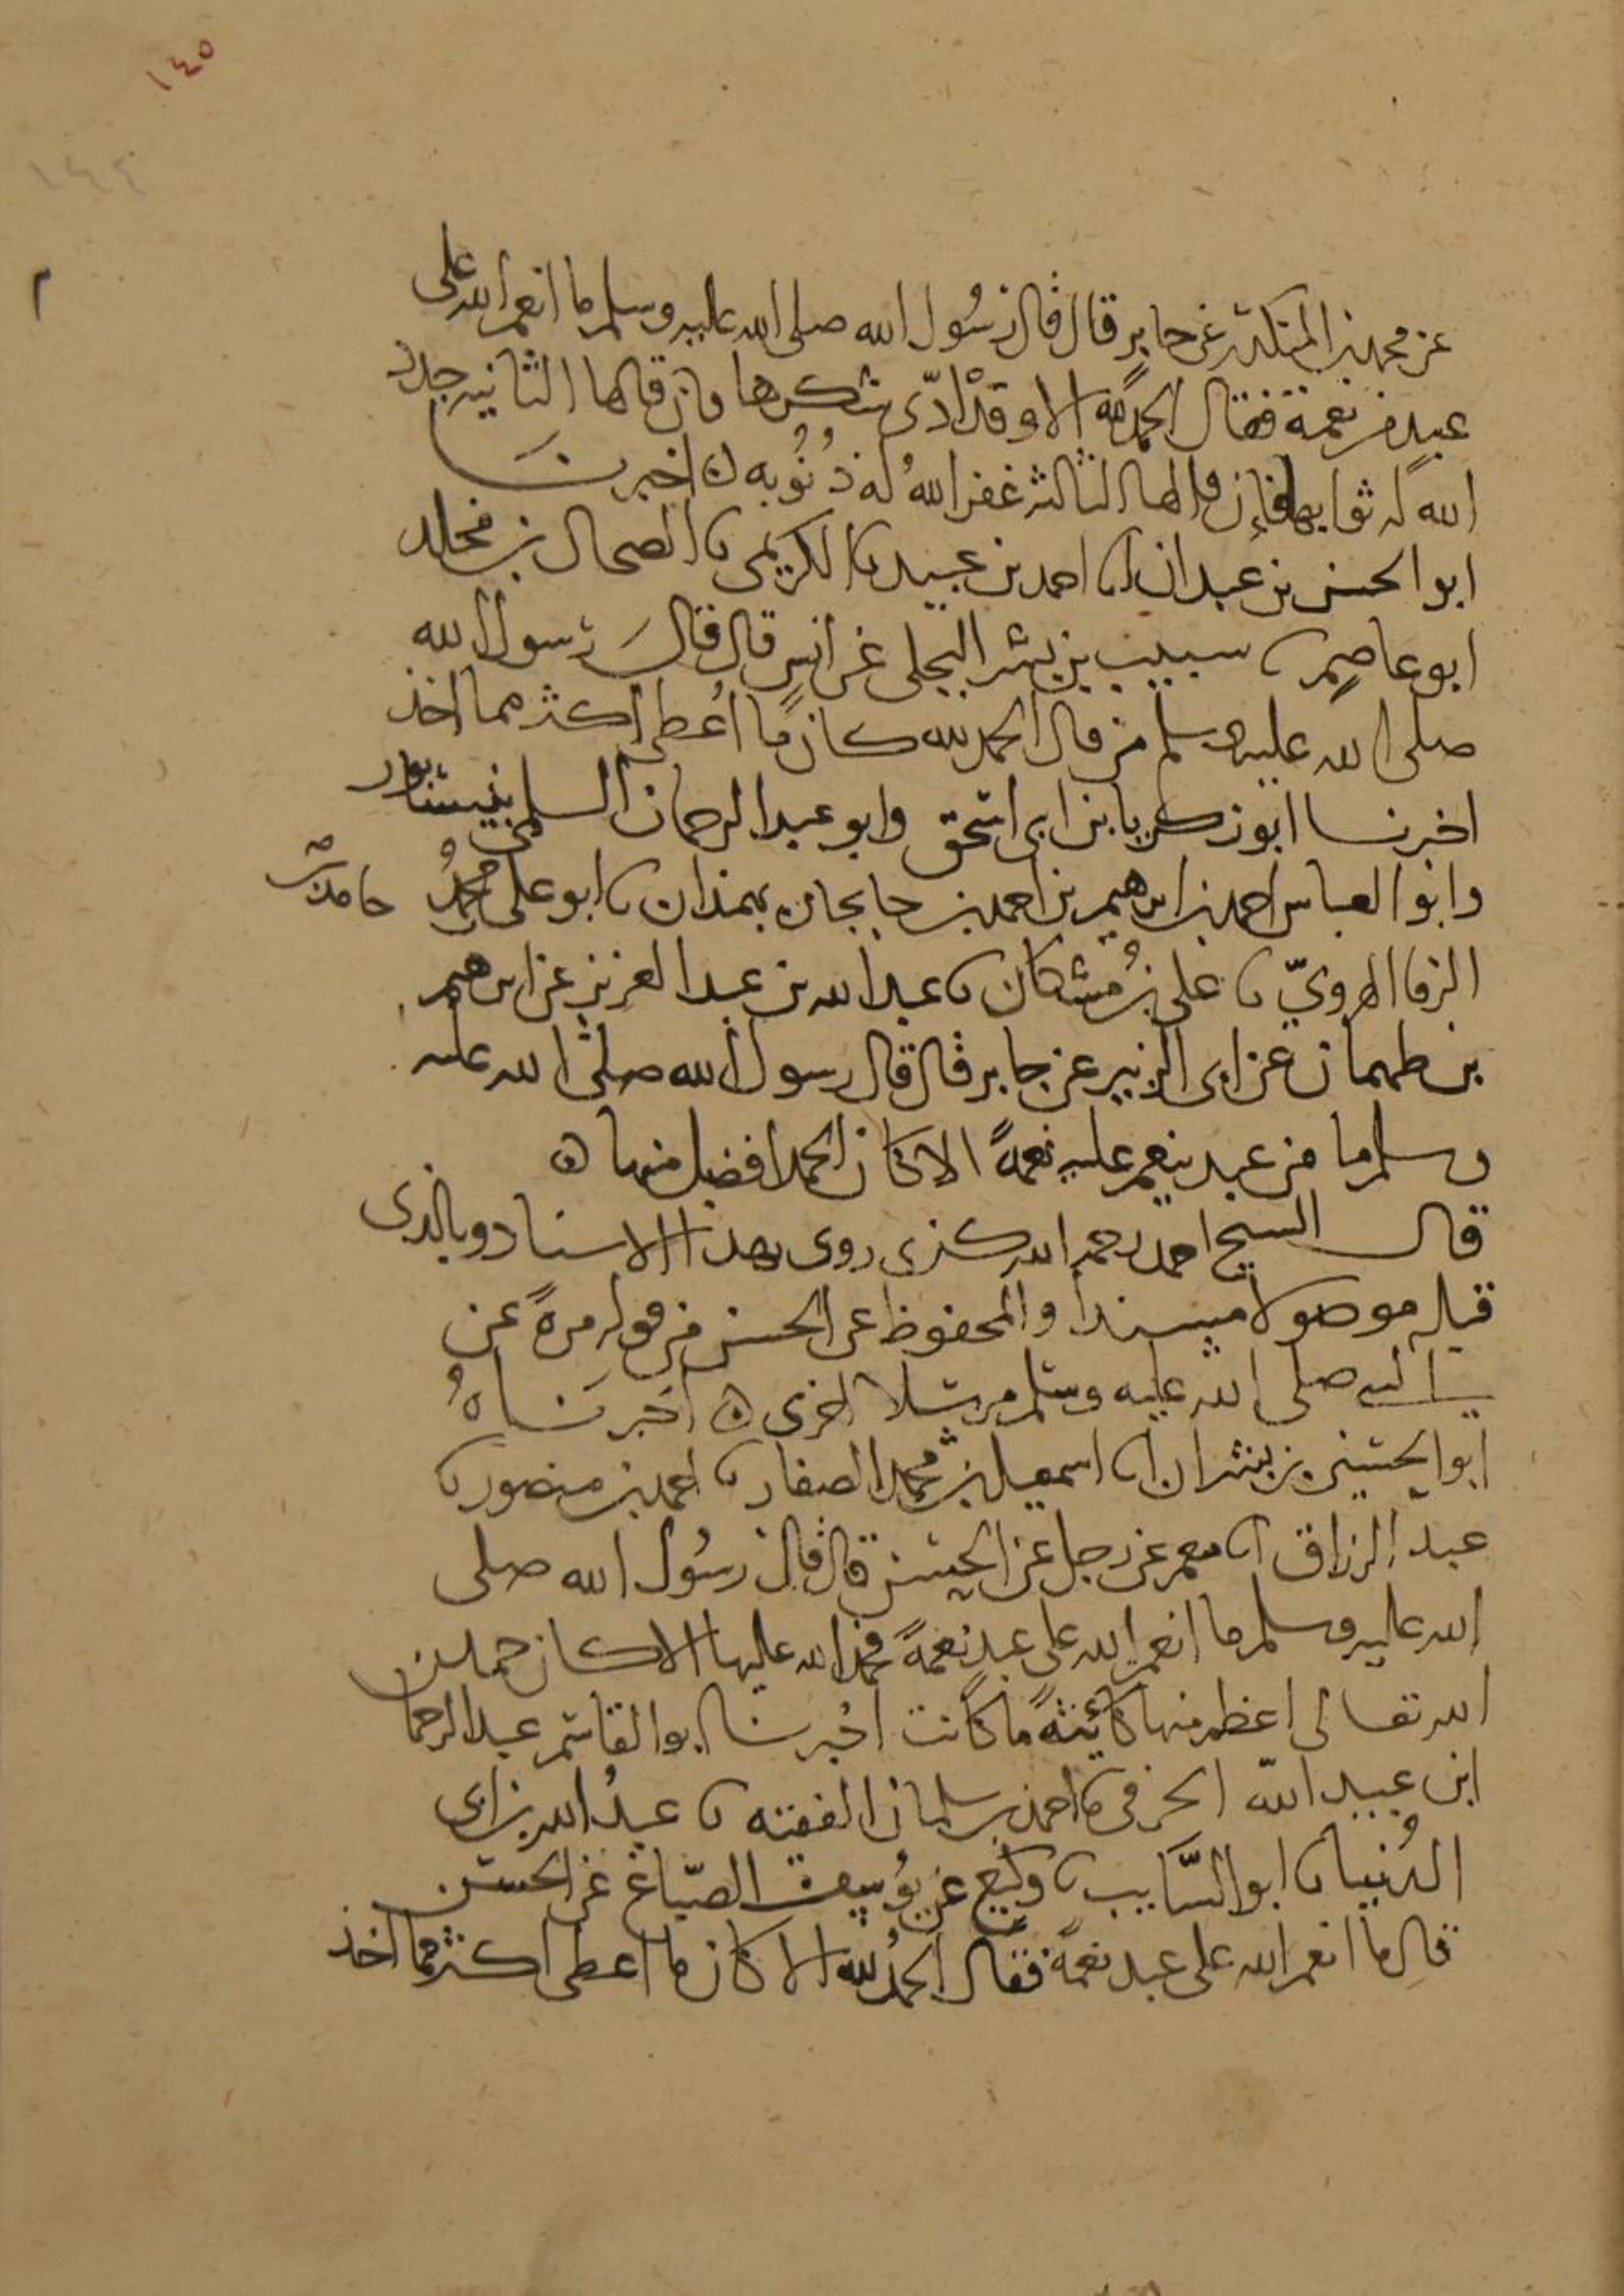 ١٤٥
١٤٤
عن محمد بن المنكدر عن جابر قال قال رسول الله صلى الله عليه وسلم ما انعم الله على
عبد من نعمة فقال الحمد لله الا وقد ادّى شكرها فان قالها الثانيه جدد
الله له ثوابها فإن قالها الثالثة غفر الله له ذنوبه اخبرنا
ابو الحسن بن عبدان انا احمد بن عبيد نا الكديمي نا الضحاك بن مخلد
ابو عاصم نا شبيب بن بشر البجلي عن انس قال قال رسول الله
صلى الله عليه وسلم من قال الحمد لله كان ما اعطى اكثر مما اخذ
اخبرنا ابو زكريا بن ابي اسحق وابو عبد الرحمان السلمي بنيسابور
وابو العباس احمد بن ابرهيم بن احمد بن جانجان بهمذان نا ابو علي محمد حامد بن
الرفا الهرويّ نا علي بن مُشكان نا عبد الله بن عبد العزيز عن ابرهيم
بن طهمان عن ابي الزبير عن جابر قال قال رسول الله صلى الله عليه
وسلم ما من عبد ينعم عليه نعمةً الا كان الحمد افضل منها
قال الشيخ احمد رحمه الله كذى روى بهذا الاسناد وبالذي
قبله موصولا مسندا والمحفوظ عن الحسن من قوله مرةً عن
النبي صلى الله عليه وسلم مرسلا اخرى اخبرناهُ
ابو الحسين بن بشران انا اسمعيل بن محمد الصفار نا احمد بن منصور نا
عبد الرزاق انا معمر عن رجل عن الحسن قال قال رسول الله صلى
الله عليه وسلم ما انعم الله على عبد نعمةً فحمد الله عليها الا كان حمد
الله تعالى اعظم منها كائنةً ما كانت اخبرنا ابو القاسم عبد الرحما
ابن عبيد الله الحرفي نا احمد بن سلمان الفقيه نا عبد الله بن ابي
الدُنيا نا ابو السّايب نا وكيع عن يُوسف الصبّاغ عن الحسن
قال ما انعم الله على عبد نعمةً فقال الحمدُ لله الا كان ما اعطى اكثر مما اخذ